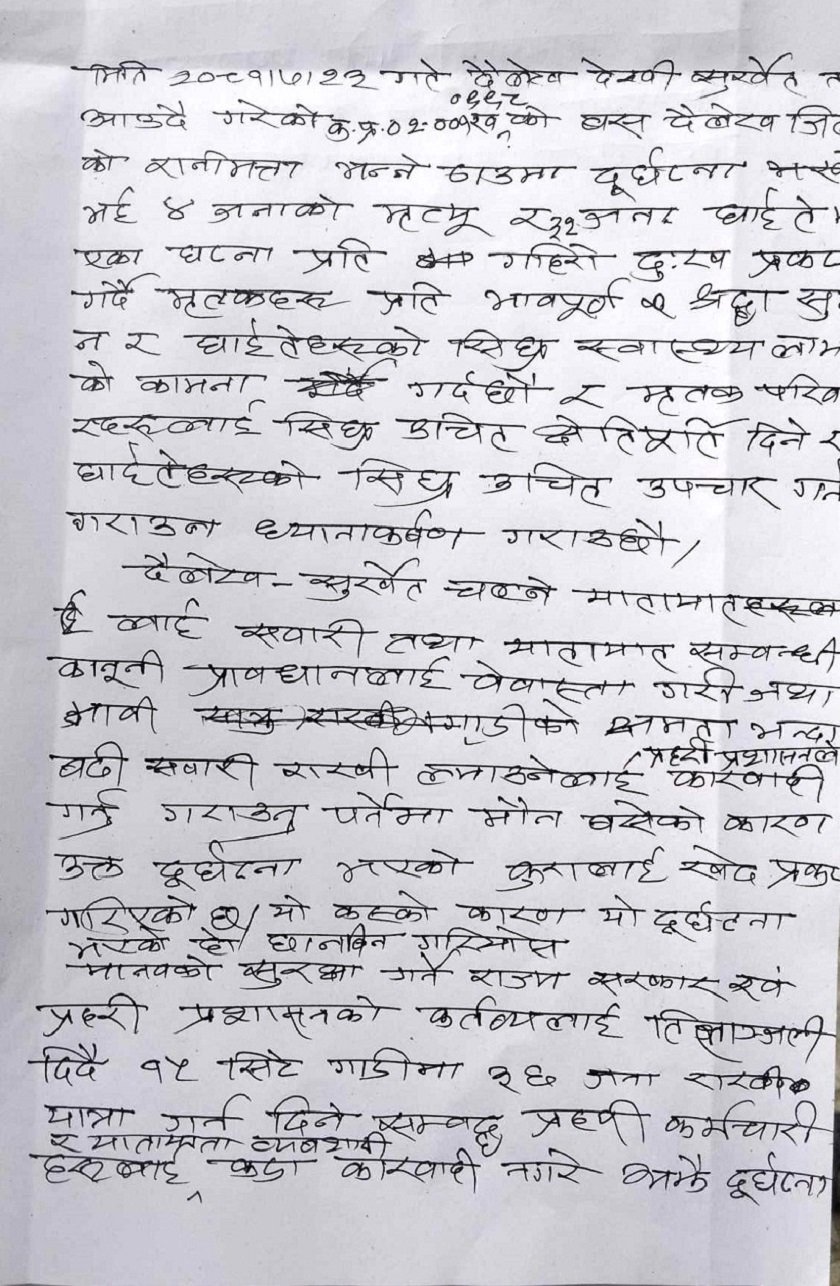 मिति २०८१।७।२३ गते दैलेख देखी सुर्खेत त
०६६८
आउदै गरेको क.प्र.०२-००१ख को बस दैलेख जि
को रानीमत्ता भन्ने ठाउमा दूर्घटना
भई ४ जनाको मृत्यू र ३२ जना घाईते।
एका घटना प्रति गहिरो दुःख प्रकट
गर्दै मृतकहरू प्रति भावपूर्ण श्रद्धा सुम
न र घाईतेहरूको सिघ्र स्वास्थ्य लाभ
को कामना गर्दछौ र मृतक परिवा
रहरूलाई सिघ्र उचित क्षेतिपूर्ति दिने र
घाईतेहरूको सिघ्र उचित उपचार गर्न
गराउन ध्यानाकर्षण गराउछौ।
दैलेख-सुर्खेत चल्ने यातायातहरू
लाई सवारी तथा यातायात सम्वन्धी
कानूनी प्रावधानलाई वेवास्ता गरी जथा
भावी गाडीको क्षमता भन्दा
प्रहरी प्रशासनले
बढी सवारी राखी लगाउनेलाई कारवाही
गर्नु गराउनु पर्नेमा मौन बसेको कारण
उक्त दूर्घटना भएको कुरालाई खेद प्रकट
गरिएको छ। यो कस्को कारण यो दूर्घटना
भएको हो छानविन गरियोस
मानवको सुरक्षा गर्ने राज्य सरकार एवं
प्रहरी प्रशासनको कर्तव्यलाई तिलाञ्जली
दिदै १५ सिटे गाडीमा ३६ जना राखी
यात्रा गर्न दिने सम्वद्ध प्रहरी कर्मचारी
र यातायात व्यवसायी
हरूलाई कडा कारवाही नगरे अझै दूर्घटना